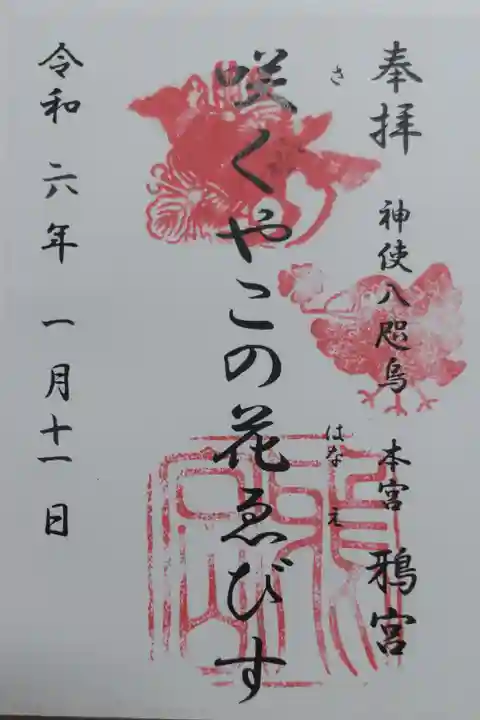 奉拝 神使八咫烏 本宮 鴉宮
さ はなゑ
咲くやこの花ゑびす
令和六年一月十一日